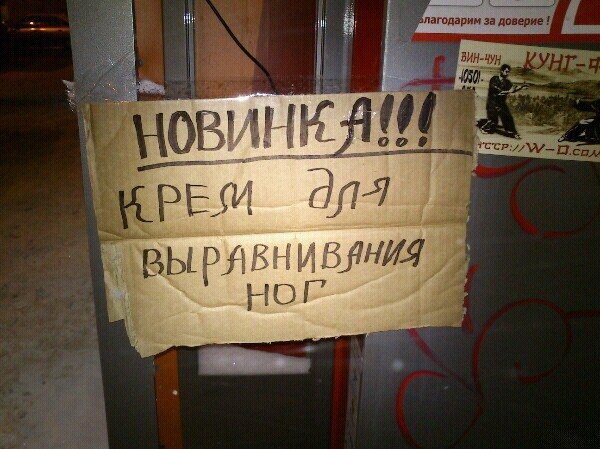 Благодарим за доверие !
ВИН-ЧУН КУНГ-Ф
НОВИНКА!!!
КРЕМ ДЛЯ
ВЫРАВНИВАНИЯ
НОГ